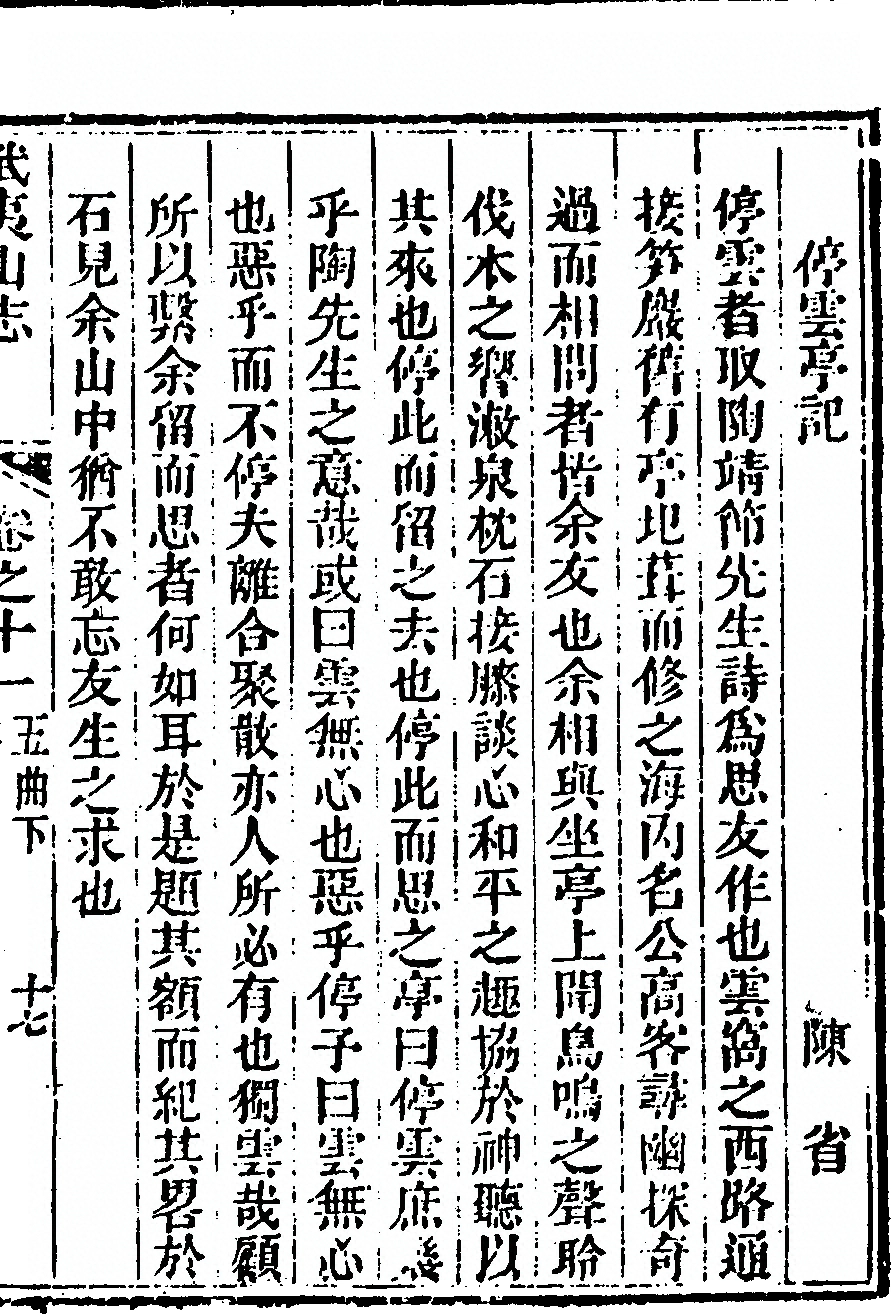 停雲亭記 陳省
停雲者取陶靖節先生詩爲思友作也雲窩之西路通
接笋巖舊有亭圯葺而修之海內名公高客尋幽探奇
過而相問者皆余友也余相與坐亭上聞鳥鳴之聲聆
伐木之響漱泉枕石接膝談心和平之趣協於神聽以
其來也停此而留之去也停此而思之亭曰停雲庶幾
乎陶先生之意哉或曰雲無心也惡乎停子曰雲無心
也惡乎而不停夫離合聚散亦人所必有也獨雲哉顧
所以繫余留而思者何如耳於是題其額而紀其畧於
石見余山中猶不敢忘友生之求也
武夷山志 卷之十一 五曲下 十七